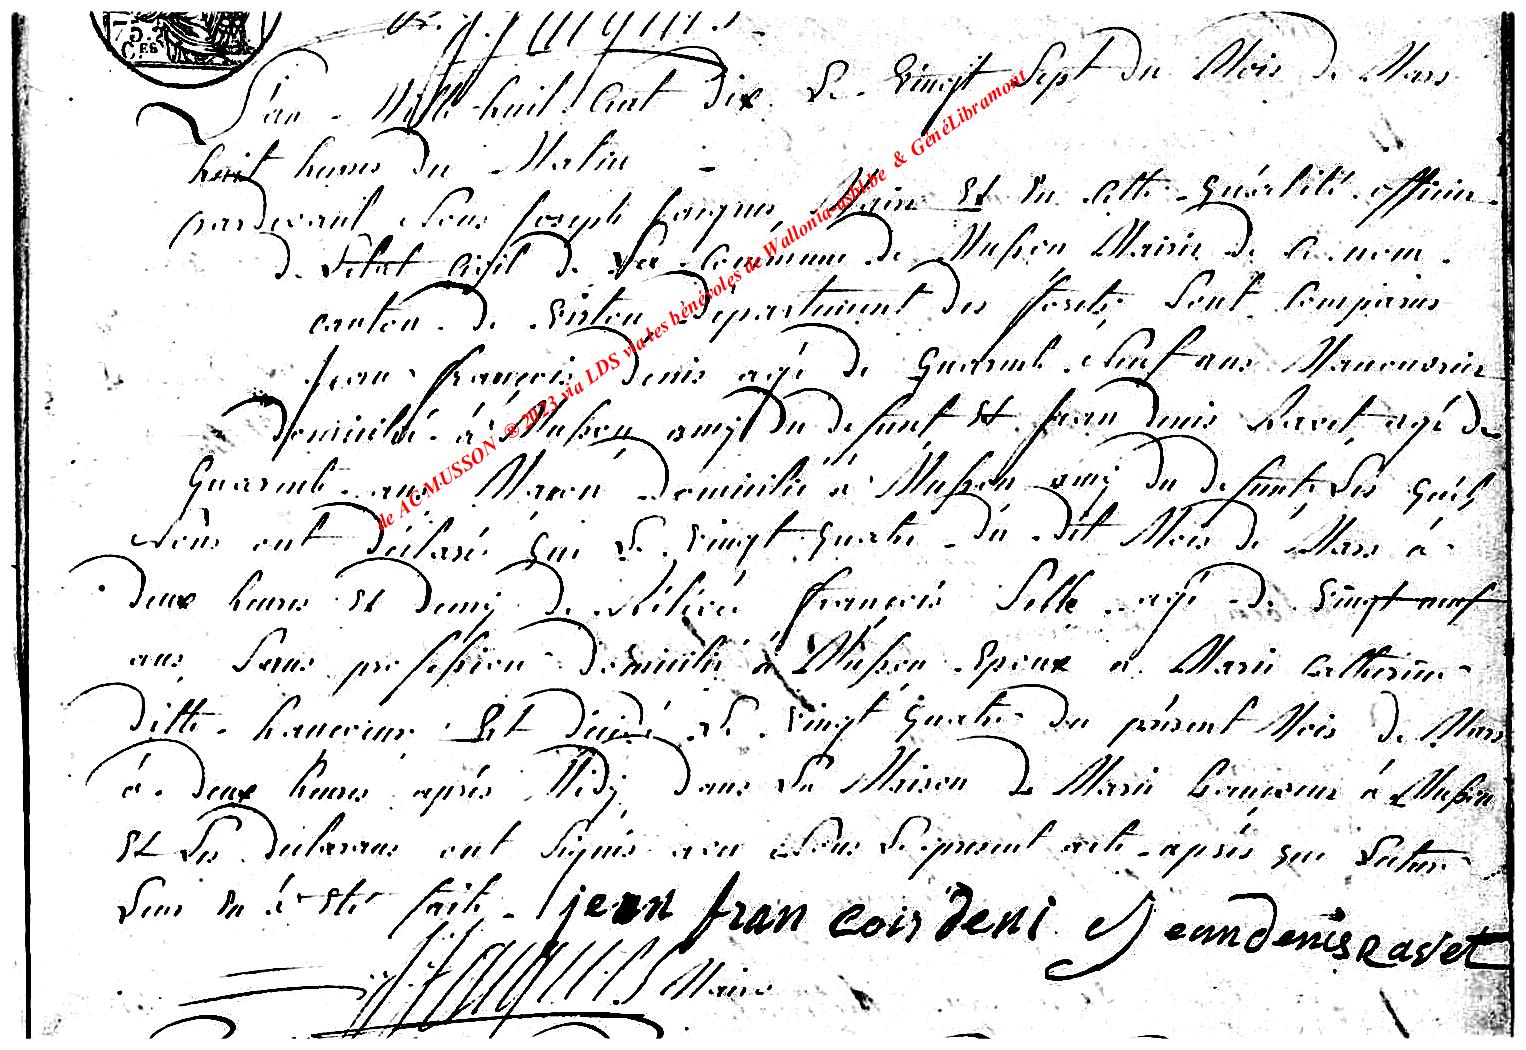 75
CES
L'an Mille huit Cent dix Le vingt Sept du Mois de Mars
huit heures du Matin
pardevant Nous Joseph Maire Et En Cette quéalité officier
de L'etat Civil de La Commune de Musson Mairie de Ce nom
canton de virton Département des forets, Sont Comparus
Jean françois denis agé de quarente Neuf ans Manouvrier
domicilié à Musson amÿ du defunt Et Jean denis Ravet agé de
quarente ans Macon domicilié à Musson amÿ du defunt, Les quels
Nous ont déclaré que Le vingt quatre du dit Mois de Mars à
deux heures Et demÿ de Rélévé françois agé de vingt neuf
ans Sans profession domicilié à Musson Epoux a Marie Catherine
ditte Et décédé Le vingt quatre du présent Mois de Mars
à deux heures après Midÿ dans La Maison de Marie à Musson
Et Les declarans ont Signés avec Nous Le present acte après que Lecture
Leur En à Eté faite jean fran cois deni Jeandenis Ravet
Maire
de AC MUSSON ® 2023 via LDS via les bénévoles de Wallonia-asbl.be & GénéLibramont